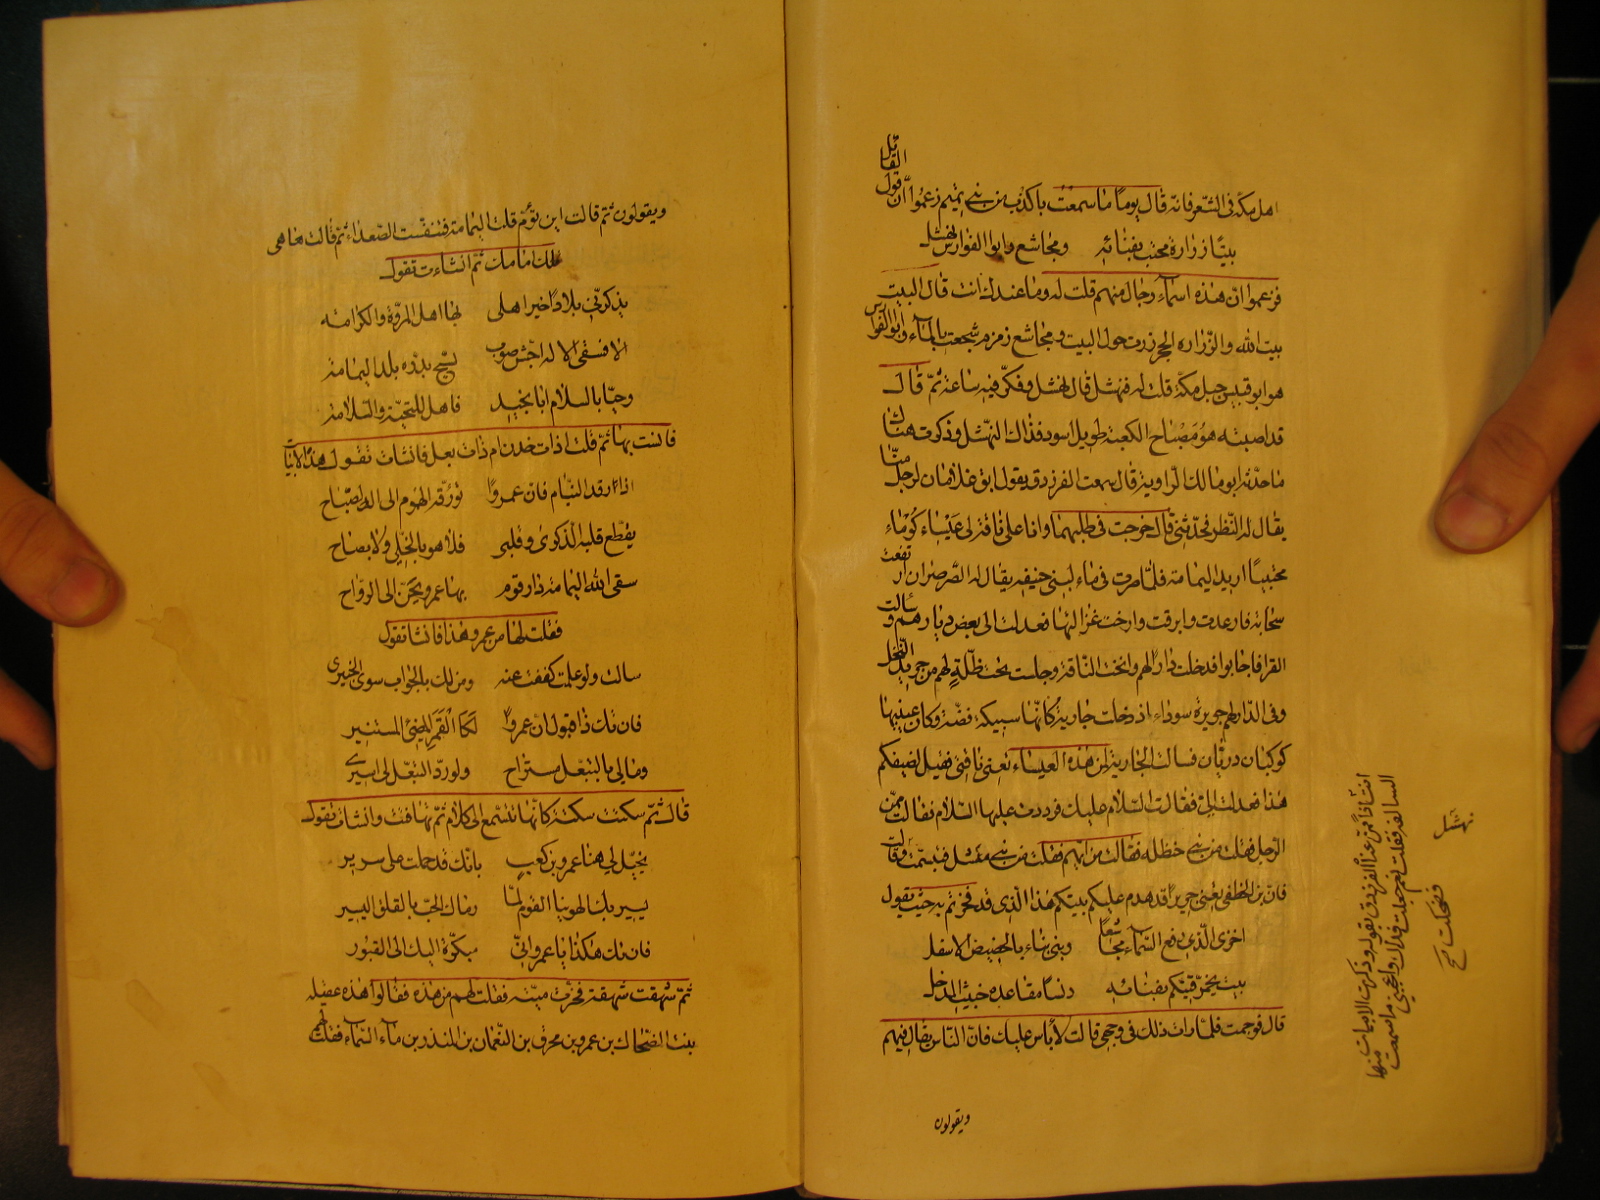 القائل
اهل مكة فى الشعر فانه قال يومًا ما سمعت باكذب من بنى تميم زعموا انّ قول
بيتًا زرارة محتب بفنائه ومجاشع وابو الفوارس نهشل
فزعموا انّ هذه اسماء رجال منهم قلت له وما عندك انت قال البيت
بيت الله والزّرارة الحجر زرت حول البيت ومجاشع زمزم شجعت بالماء وابو الفوارس
هو ابو قبيس جبل مكة قلت له فنهشل قال نهشل وفكّر فيه ساعة ثمّ قال
قد اصبته هو مصباح الكعبة طويل اسود فذاك النهشل وذكرت هناك
ما حدّثه ابو مالك الراوية قال سمعت الفرزدق يقول ابق غلامان لرجل منّا
يقال له النظر فحدّثنى قال خرجت فى طلبهما وانا على ناقة لى عيساء كوماء
اريد اليمامة فلمّا صرت فى ماء لبنى حنيفة يقال له الصرصران ارتفعت
سحابة فارعدت وابرقت وارخت عزاليها فعدلت الى بعض ديارهم وسألت
القرا فاجابوا فدخلت دارًا لهم وانخت الناقة وجلست تحت ظلّة لهم من جريد النخل
وفى الدار لهم جويرة سوداء اذ دخلت جارية كانّها سبيكة فضّة وكان عينيها
كوكبان درّيّان فسالت الجارية لمن هذه العيساء تعنى ناقتى فقيل لضيفكم
هذا فعدلت الىّ فقالت السّلام عليك فرددت عليها السلام فقالت ممّن
الرّجل فقلت من بنى حنظله فقالت من ايهم فقلت من بنى نهشل فتبسّمت وقالت
فان بن الخطفى يعنى جريرًا قد هدم عليكم بيتكم هذا الذى قد فخرتم به حيث يقول
اخزى الّذى رفع السّماء مجاشعًا وبنى بناء بالحضيض الاسفل
بيت يحمّم قينكم بفنائه دنسًا مقاعده خبيث المدخل
قال فوجمت فلمّا رات ذلك فى وجهى قالت لا باس عليك فانّ النّاس يقال فيهم
ويقولون
نهشل
فضحكت صح
ويقولون ثمّ قالت اين تؤم قلت اليمامة فتنفّست الصّعداء ثمّ قالت ها هى
تلك امامك ثمّ انشاءت تقول
يذكّرنى بلادًا خير اهلى بها اهل المروّة والكرامه
الا فسقى الاله اجشّ صوب يسحّ بدرّه بلد اليمامة
وحيّا بالسلام ابا نجيد فاهل للتحيّة والسّلامة
فانست بها ثمّ قلت اذات خدن ام ذات بعل فانشات تقول هذه الابيات
اذا رقد النّيام فان عمروًا تؤرّقه الهموم الى الصّباح
يقطّع قلبه الذّكرى وقلبى فلا هو بالخلّى ولا بصاح
سقى الله اليمامة دار قوم بها عمرو يحنّ الى الرّواح
فقلت لها من عمرو هذا فانشا تقول
سالت ولو علمت كففت عنه ومن لك بالجواب سوى الخبير
فان تك ذا قبول انّ عمروًا لكا القمر المضئ المستنير
وما لى بالتبعّل مستراح ولو ردّ التبعّل لى اسيرى
قال ثمّ سكتت سكتة كانّها تتسمّع الى كلام ثمّ تهافتت وانشات تقول
يخيّل لى هنا عمرو بن كعب بانّك قد حملت على سرير
يسير بك الهوينا القوم لمّا رماك الحبّ بالقلق اليسير
فان تك هكذا يا عمرو انّى مبكرة اليك الى القبور
ثمّ شهقت شهقة فخرّت ميتة فقلت لهم من هذه فقالوا هذه عقيله
بنت الضحّاك بن عمرو بن محرق بن النعمان بن المنذر بن ماء السماء فقلت لهم